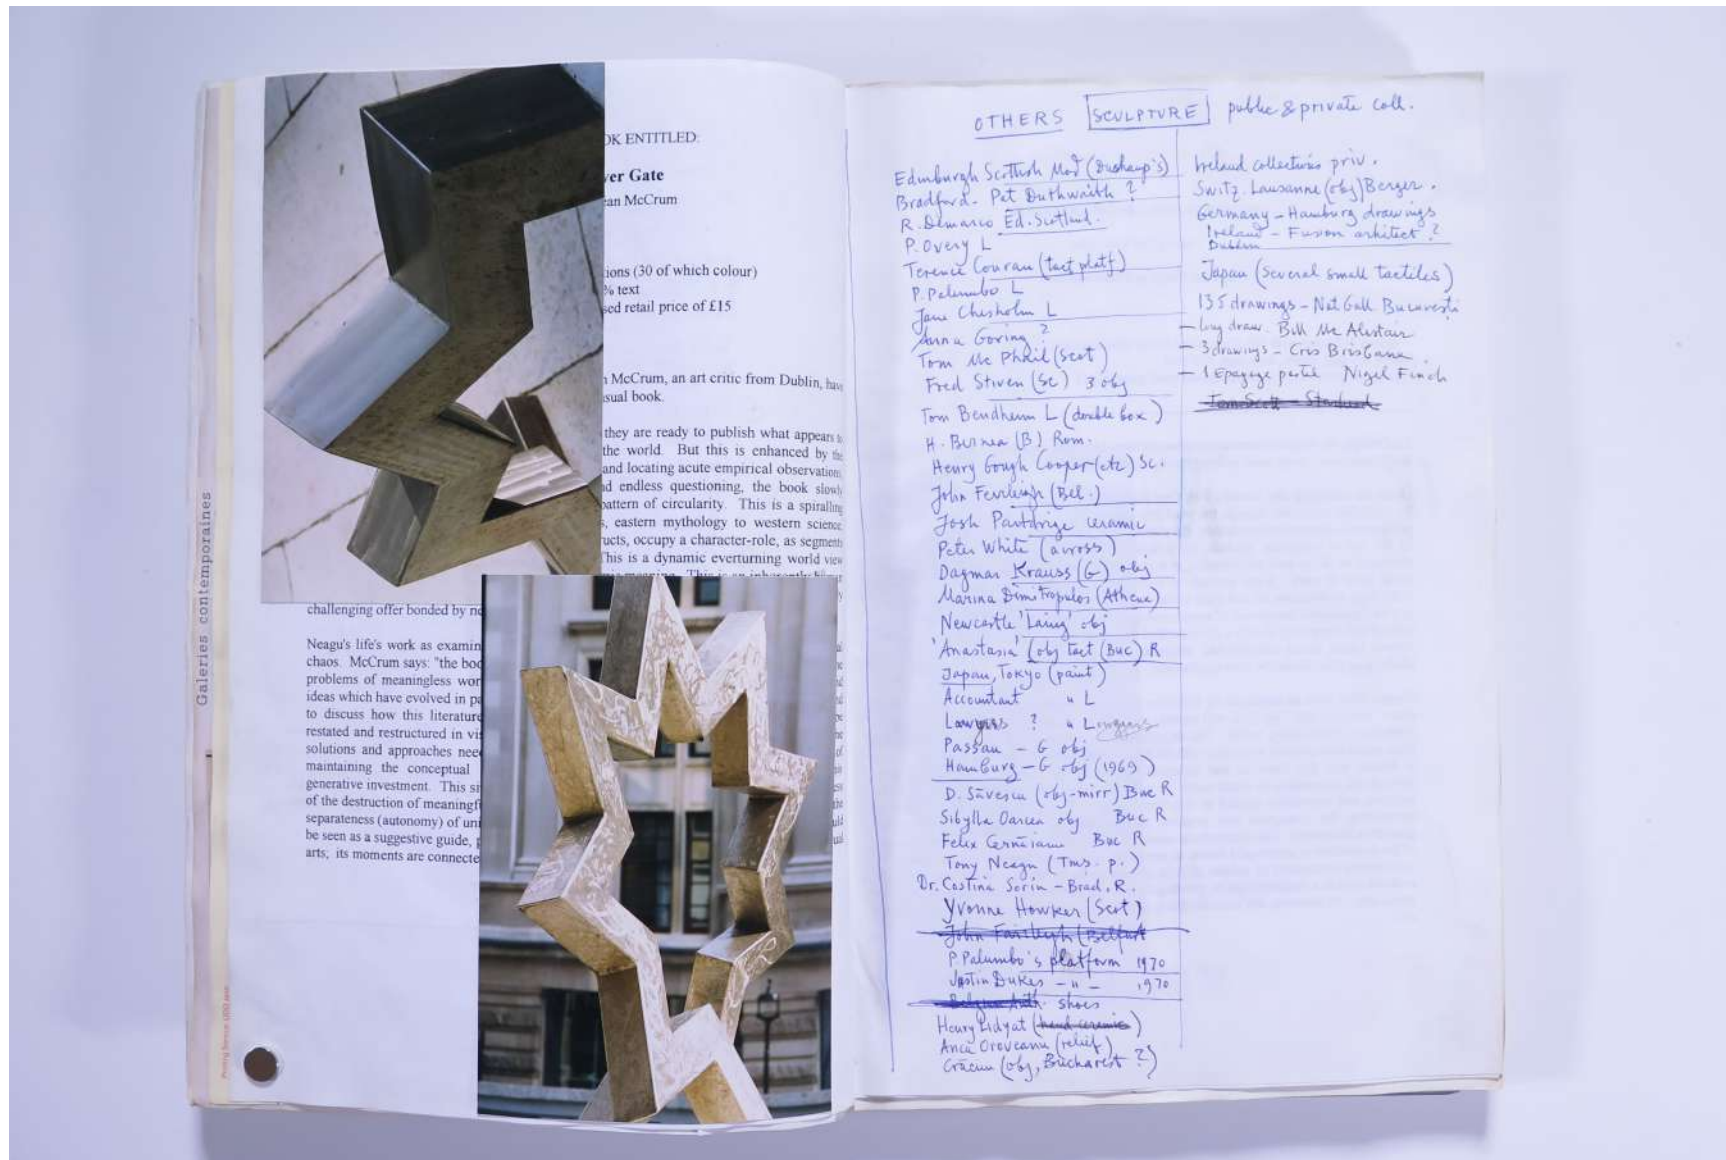 Galeries contemporaines
OK ENTITLED:
ver Gate
ean McCrum
ions (30 of which colour)
% text
sed retail price of £15
n McCrum, an art critic from Dublin, have
sual book.
they are ready to publish what appears to
the world. But this is enhanced by the
and locating acute empirical observations
nd endless questioning, the book slowly
pattern of circularity. This is a spiralling
s, eastern mythology to western science,
ucts, occupy a character-role, as segments
This is a dynamic everturning world view
challenging offer bonded by ne
Neagu's life's work as examin
chaos. McCrum says: "the boo
problems of meaningless wor
ideas which have evolved in pa
to discuss how this literature
restated and restructured in vis
solutions and approaches nee
maintaining the conceptual
generative investment. This si
of the destruction of meaningf
separateness (autonomy) of uni
be seen as a suggestive guide, p
arts; its moments are connecte
OTHERS SCULPTURE public & private coll.
Edinburgh Scottish Mod (Duchamp's)
Bradford - Pat Duthwaith ?
R. Demarco Ed. Scotland.
P. Overy L
Terence Conran (tact platf)
P. Palumbo L
Jane Chisholm L
Anna Goring ?
Tom Mc Phail (Scot)
Fred Stiven (Sc) 3 obj
Tom Bendheim L (double box)
H. Bernea (B) Rom.
Henry Gough Cooper (etc) Sc.
John (Bel.)
Josh Partdrige ceramic
Peter White (across)
Dagmar Krauss (G) obj
Marina Dimitropulos (Athena)
Newcastle 'Laing' obj
'Anastasia' (obj tact (Buc) R
Japan, Tokyo (paint)
Accountant " L
Lawyers ? " L Lawyers
Passau - G obj
Hamburg - G obj (1969)
D. Săvescu (obj-mirr) Buc R
Sibylla Oarcea obj Buc R
Felix Buc R
Tony Neagu (Tms. p.)
Dr. Costina Sorin - Brad, R.
Yvonne Hawker (Scot)
John Fairleigh (Belfast
P Palumbo's platform 1970
Justin Dukes - " - 1970
shoes
Henry Lidyat (hand ceramic)
Anca Oroveanu (relief)
Crăciun (obj, Bucharest ?)
Ireland collections priv.
Switz. Lausanne (obj) Berger.
Germany - Hamburg drawings
Ireland - Fusion arhitect ?
Dublin
Japan (several small tactiles)
135 drawings - Nat Gall Bucuresti
- long draw. Bill Mc Alistair
- 3 drawings - Cris Brisbane.
- 1 Nigel Finch